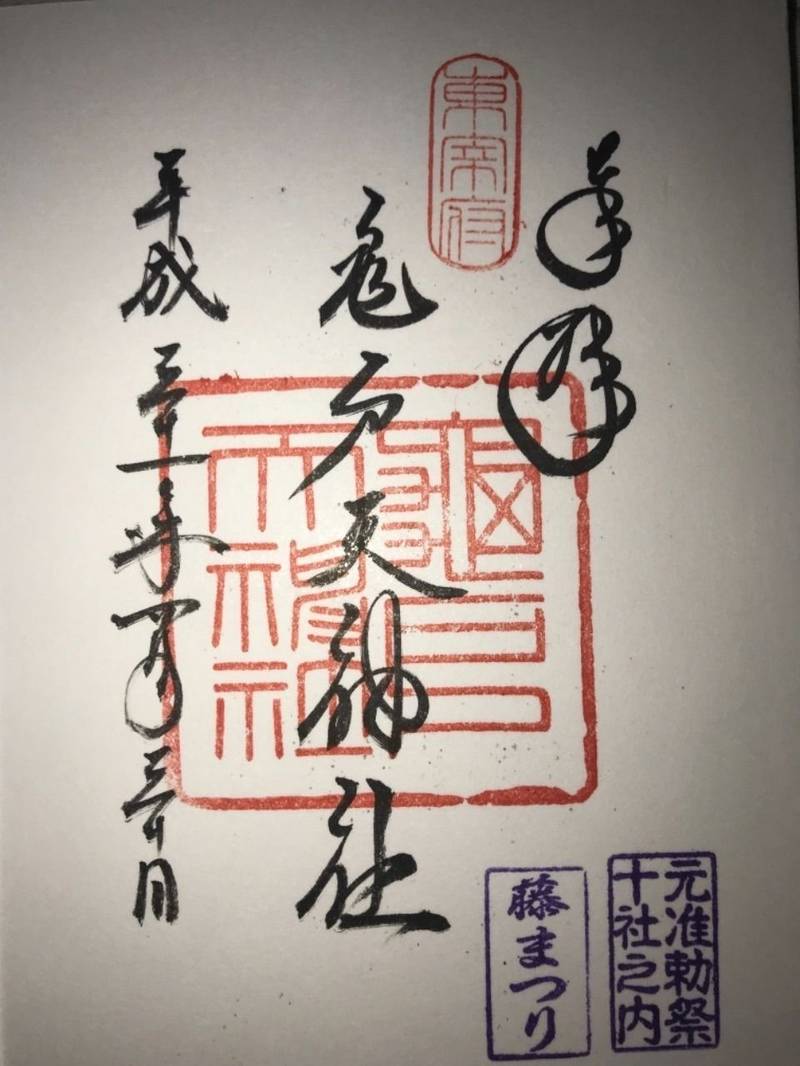 奉拝
東宰府
亀戸天神社
亀戸天神社
平成三十一年四月三十日
元准勅祭
十社之内
藤まつり